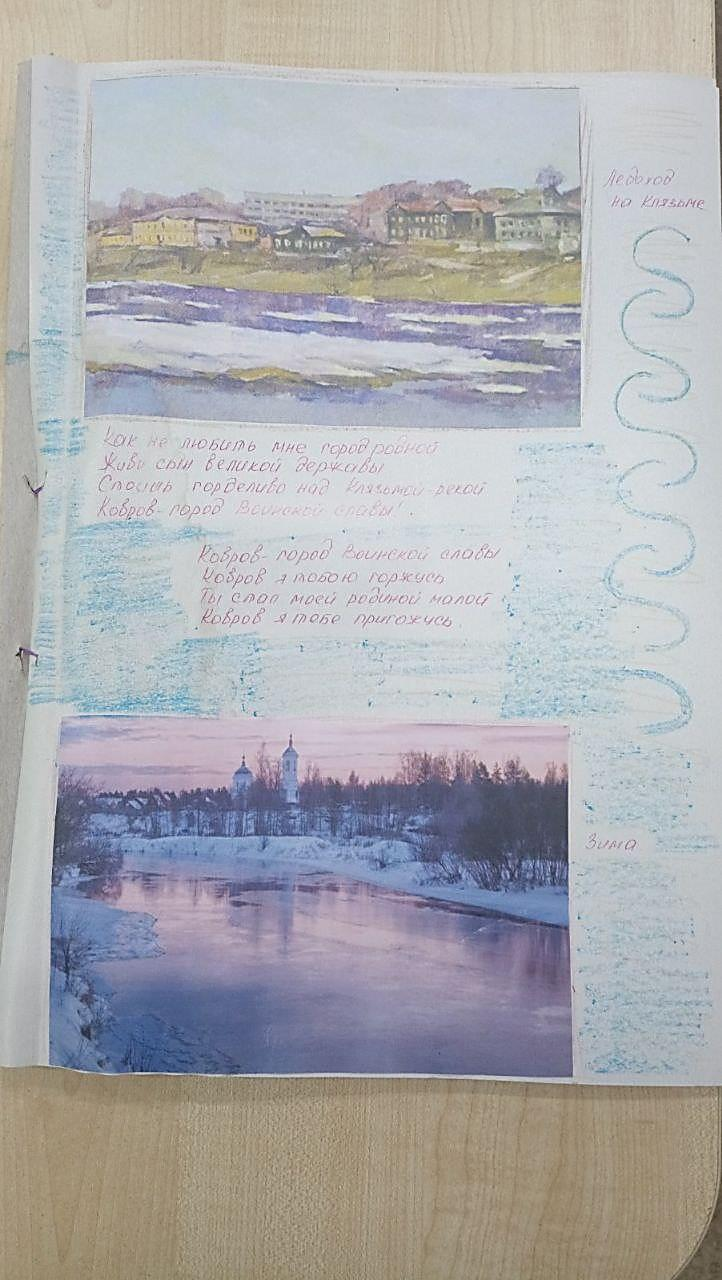 Ледоход
на Клязьме
Как не любить мне город родной
Живи сын великой державы
Стоишь горделиво над Клязьмой-рекой
Ковров-город Воинской славы!.
Ковров-город Воинской славы
Ковров я тобою горжусь
Ты стал моей родиной малой
Ковров я тебе пригожусь
Зима